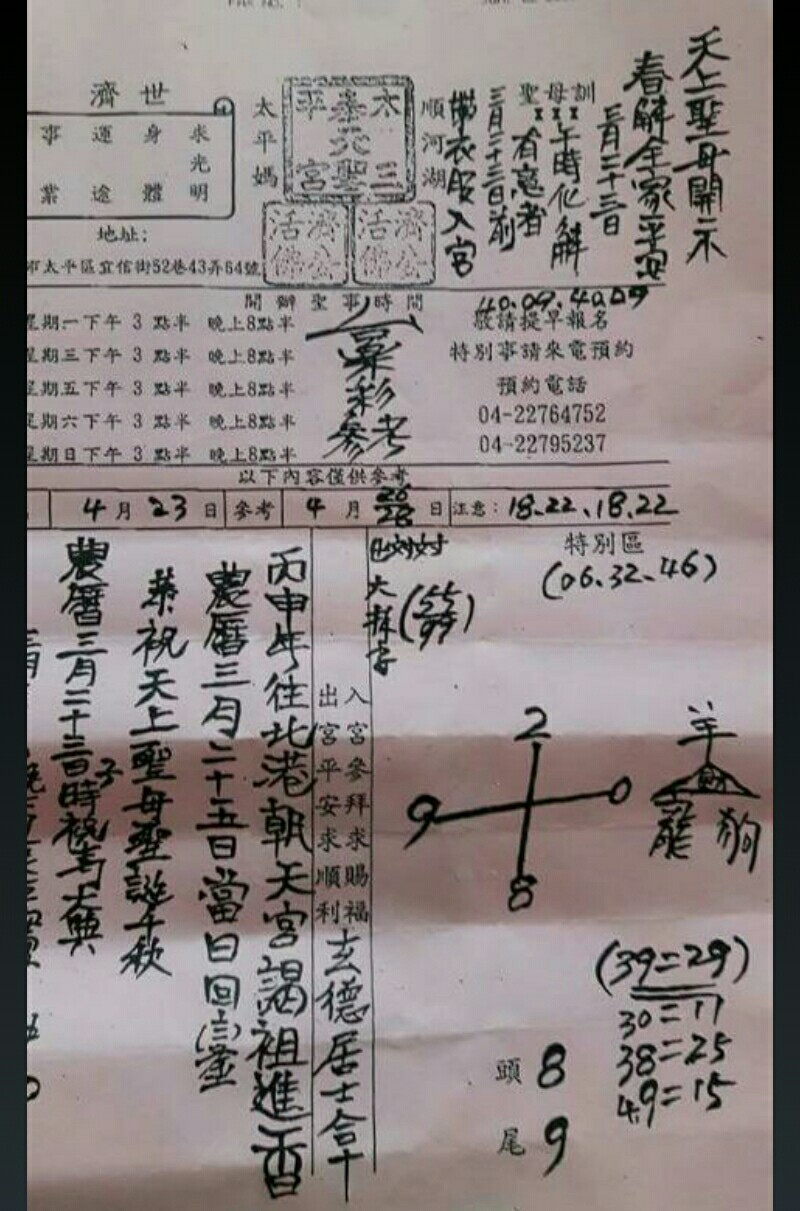 天上聖母開示
春解全家平安
三月二十三日
聖母訓
午時化解
有意者
三月二十三日前
帶衣服入宮
順河湖
太三
泰元聖
平宮
濟公活佛
濟公活佛
太平媽
濟世
求光明
身體
運途
事業
地址:
市太平區宜信街52巷43弄64號
開辦聖事時間
40.09.40.09
星期一下午 3 點半 晚上8點半
星期三下午 3 點半 晚上8點半
星期五下午 3 點半 晚上8點半
星期六下午 3 點半 晚上8點半
星期日下午 3 點半 晚上8點半
敬請提早報名
特別事請來電預約
預約電話
04-22764752
04-22795237
六合彩參考
以下內容僅供參考
4月23日 參考 4月 26 28 日 注意: 18.22.18.22
特別區
(06.32.46)
(55
99)
入宮參拜求賜福
出宮平安求順利
玄德居士合十
丙申年往北港朝天宮謁祖進香
農曆三月二十五日當日回鑾
恭祝天上聖母聖誕千秋
農曆三月二十三日子時祝壽大典
2
9 0
8
羊
財
龍 狗
(39=29)
30=17
38=25
49=15
頭 8
尾 9